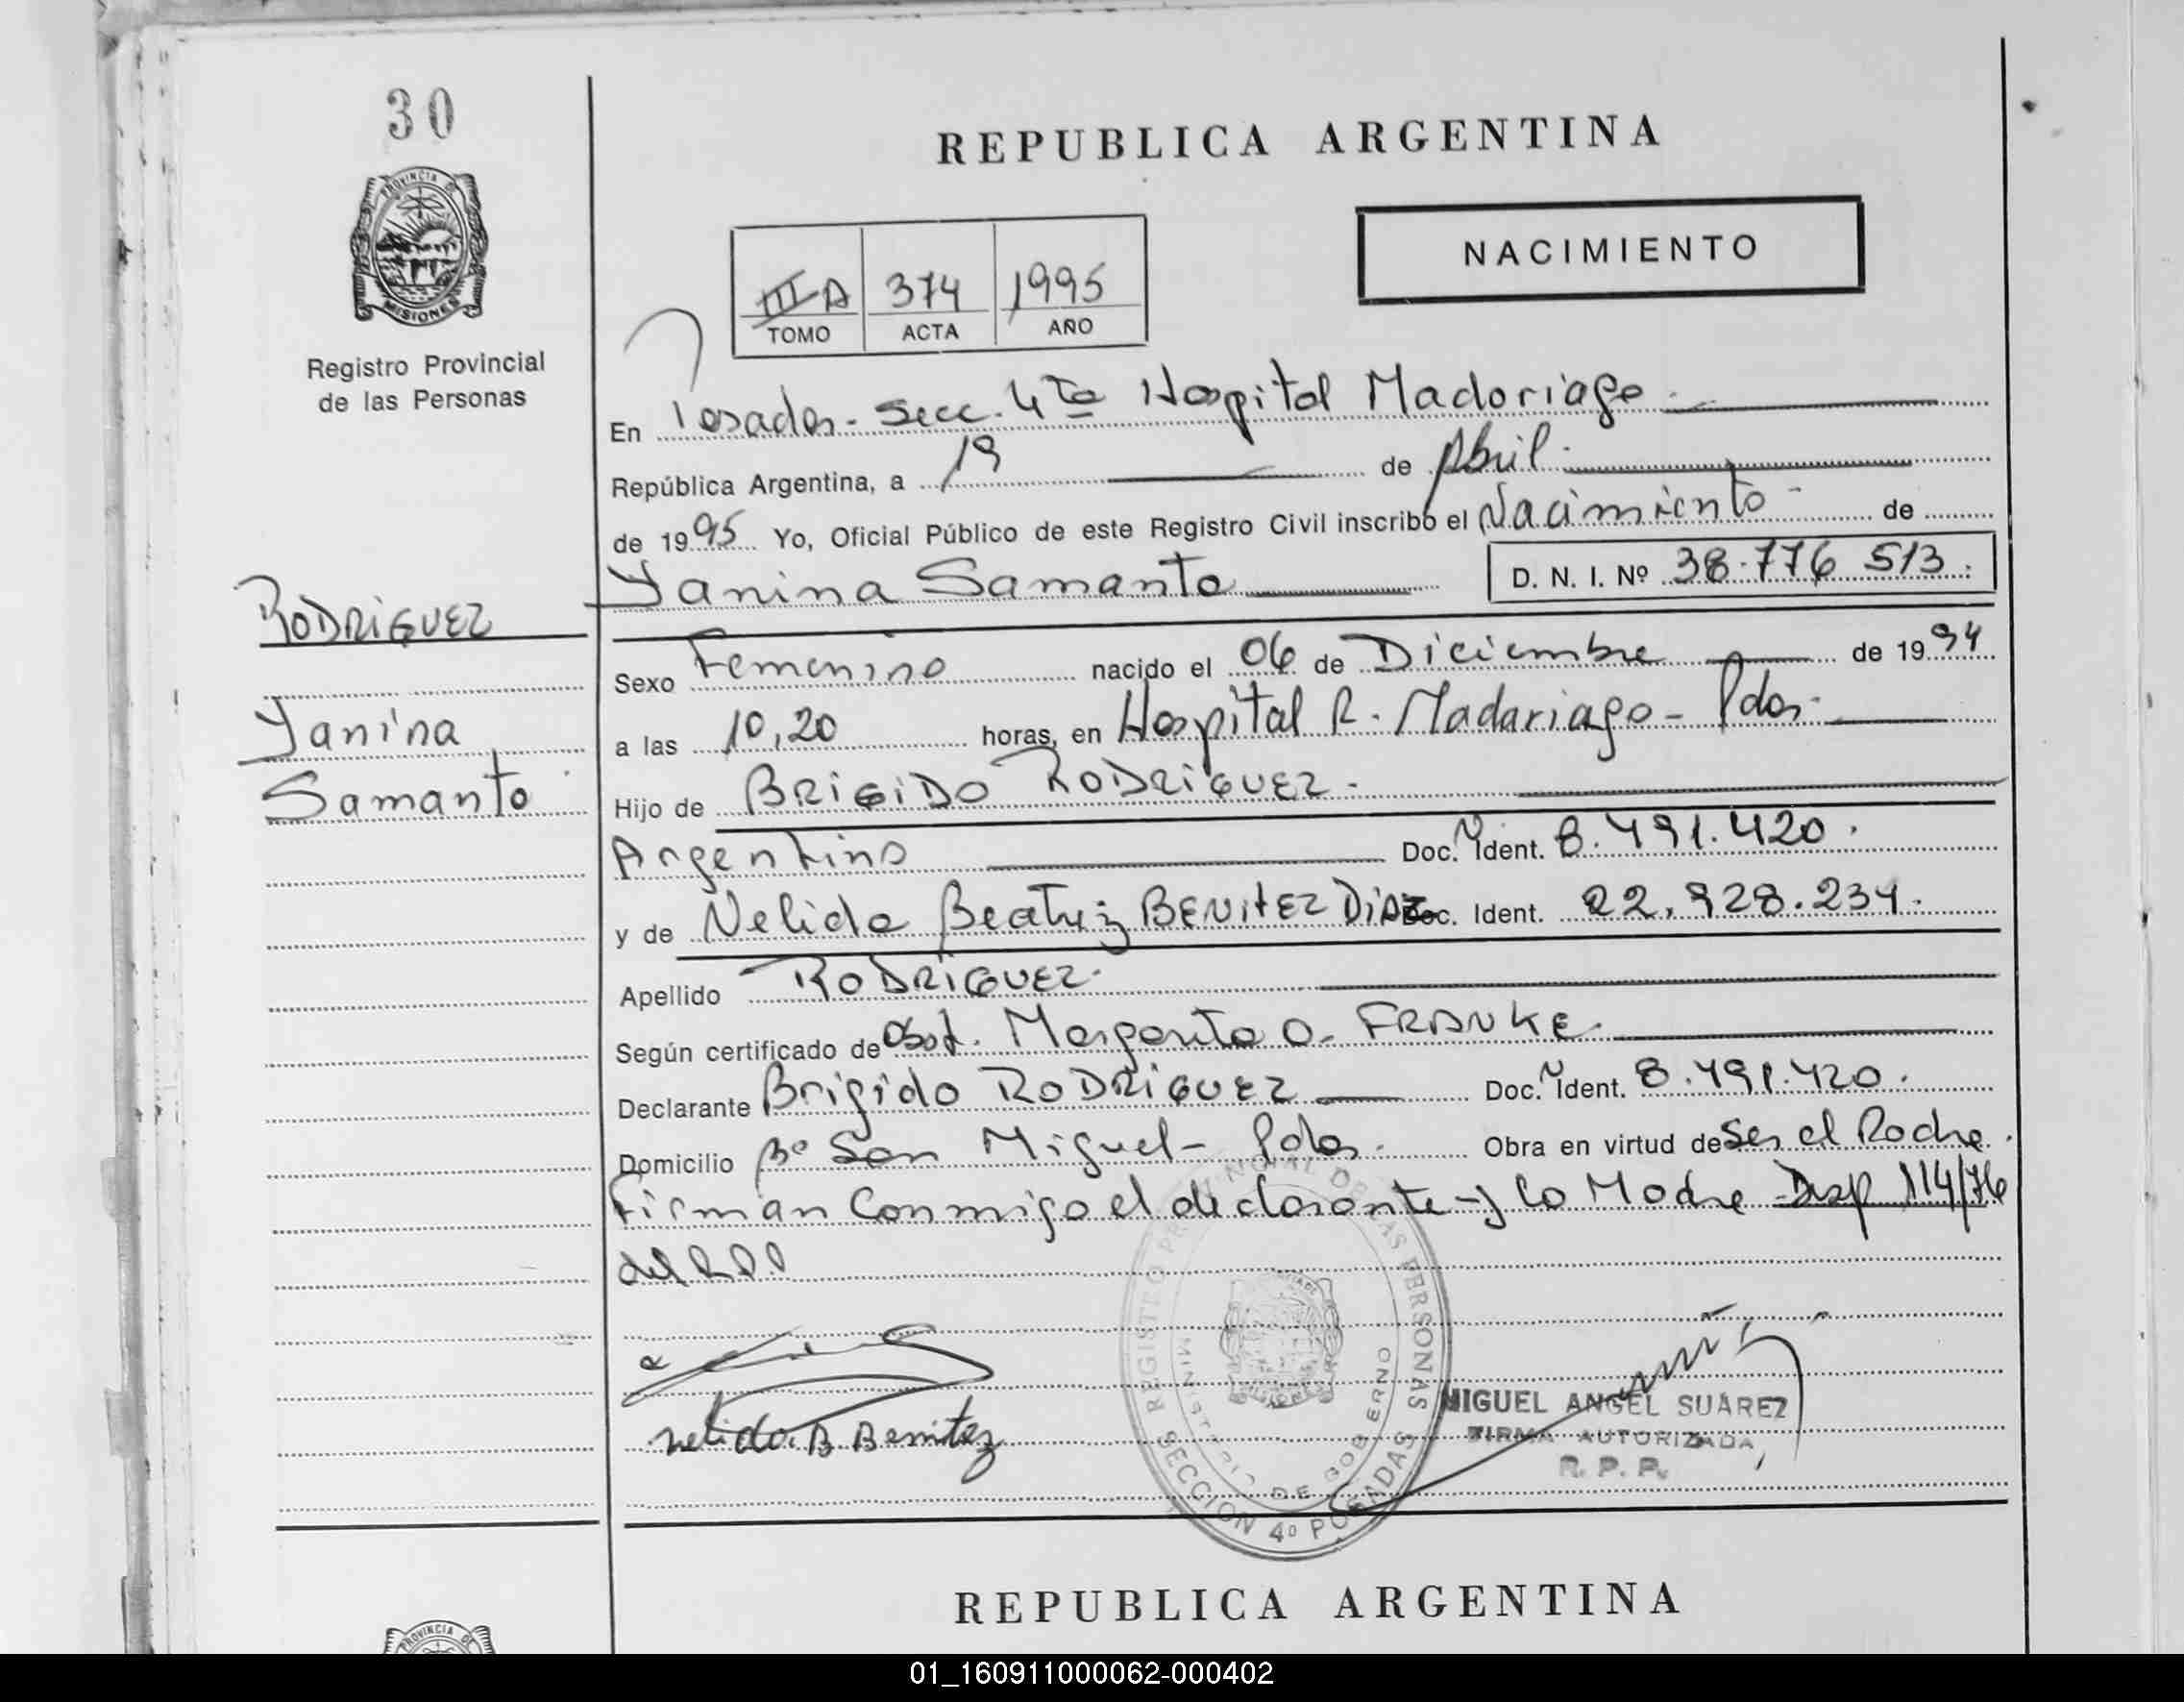 30
PROVINCIA DE
MISIONES
Registro Provincial
de las Personas
REPUBLICA ARGENTINA
NACIMIENTO
III A 374 1995
TOMO ACTA AÑO
En Posadas - Secc. 4ta Hospital Madariaga
República Argentina, a 19 de Abril
de 1995 Yo, Oficial Público de este Registro Civil inscribo el Nacimiento de
Yanina Samanta D. N. I. Nº 38.776 513
RODRIGUEZ
Yanina
Samanta
Sexo Femenino nacido el 06 de Diciembre de 1994
a las 10,20 horas, en Hospital R. Madariaga - Pdas.
Hijo de BRIGIDO RODRIGUEZ.
Argentino Doc. Ident. 8.491.420.
y de Nelida Beatriz BENITEZ DIAZ Doc. Ident. 22.928.234.
Apellido RODRIGUEZ.
Según certificado de Obst. Margarita O. FRANKE.
Declarante Brigido RODRIGUEZ Doc. Ident. 8.491.420.
Domicilio Bº San Miguel - Pdas. Obra en virtud de Ser el Padre.
Firman Conmigo el declarante y la Madre Disp 114/76
del RPP
REGISTRO PROVINCIAL DE LAS PERSONAS
MINISTERIO DE GOBIERNO
SECCION 4º POSADAS
Nelida B Benitez
MIGUEL ANGEL SUAREZ
FIRMA AUTORIZADA
R. P. P.
REPUBLICA ARGENTINA
PROVINCIA DE
01_160911000062-000402